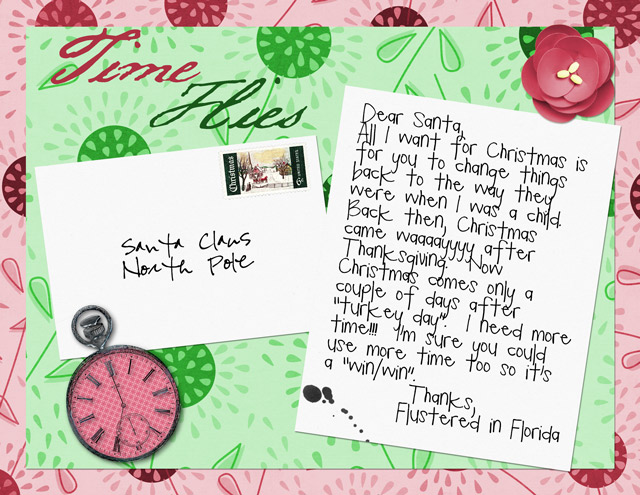 Time
Flies
Christmas
Santa Claus
North Pole
Dear Santa,
All I want for Christmas is
for you to change things
back to the way they
were when I was a child.
Back then, Christmas
came waaaayyyy after
Thanksgiving. Now
Christmas comes only a
couple of days after
"turkey day". I need more
time!!! I'm sure you could
use more time too so it's
a "win/win".
Thanks,
Flustered in Florida